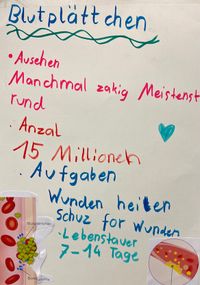 Blutplättchen
• Aussehen
Manchmal zakig Meistenst
rund
• Anzal
15 Millionen
• Aufgaben
Wunden heilen
Schuz for Wunden
• Lebenstauer
7-14 Tage